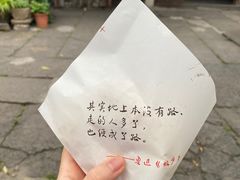 其实地上本没有路，
走的人多了，
也便成了路。
——鲁迅《故乡》